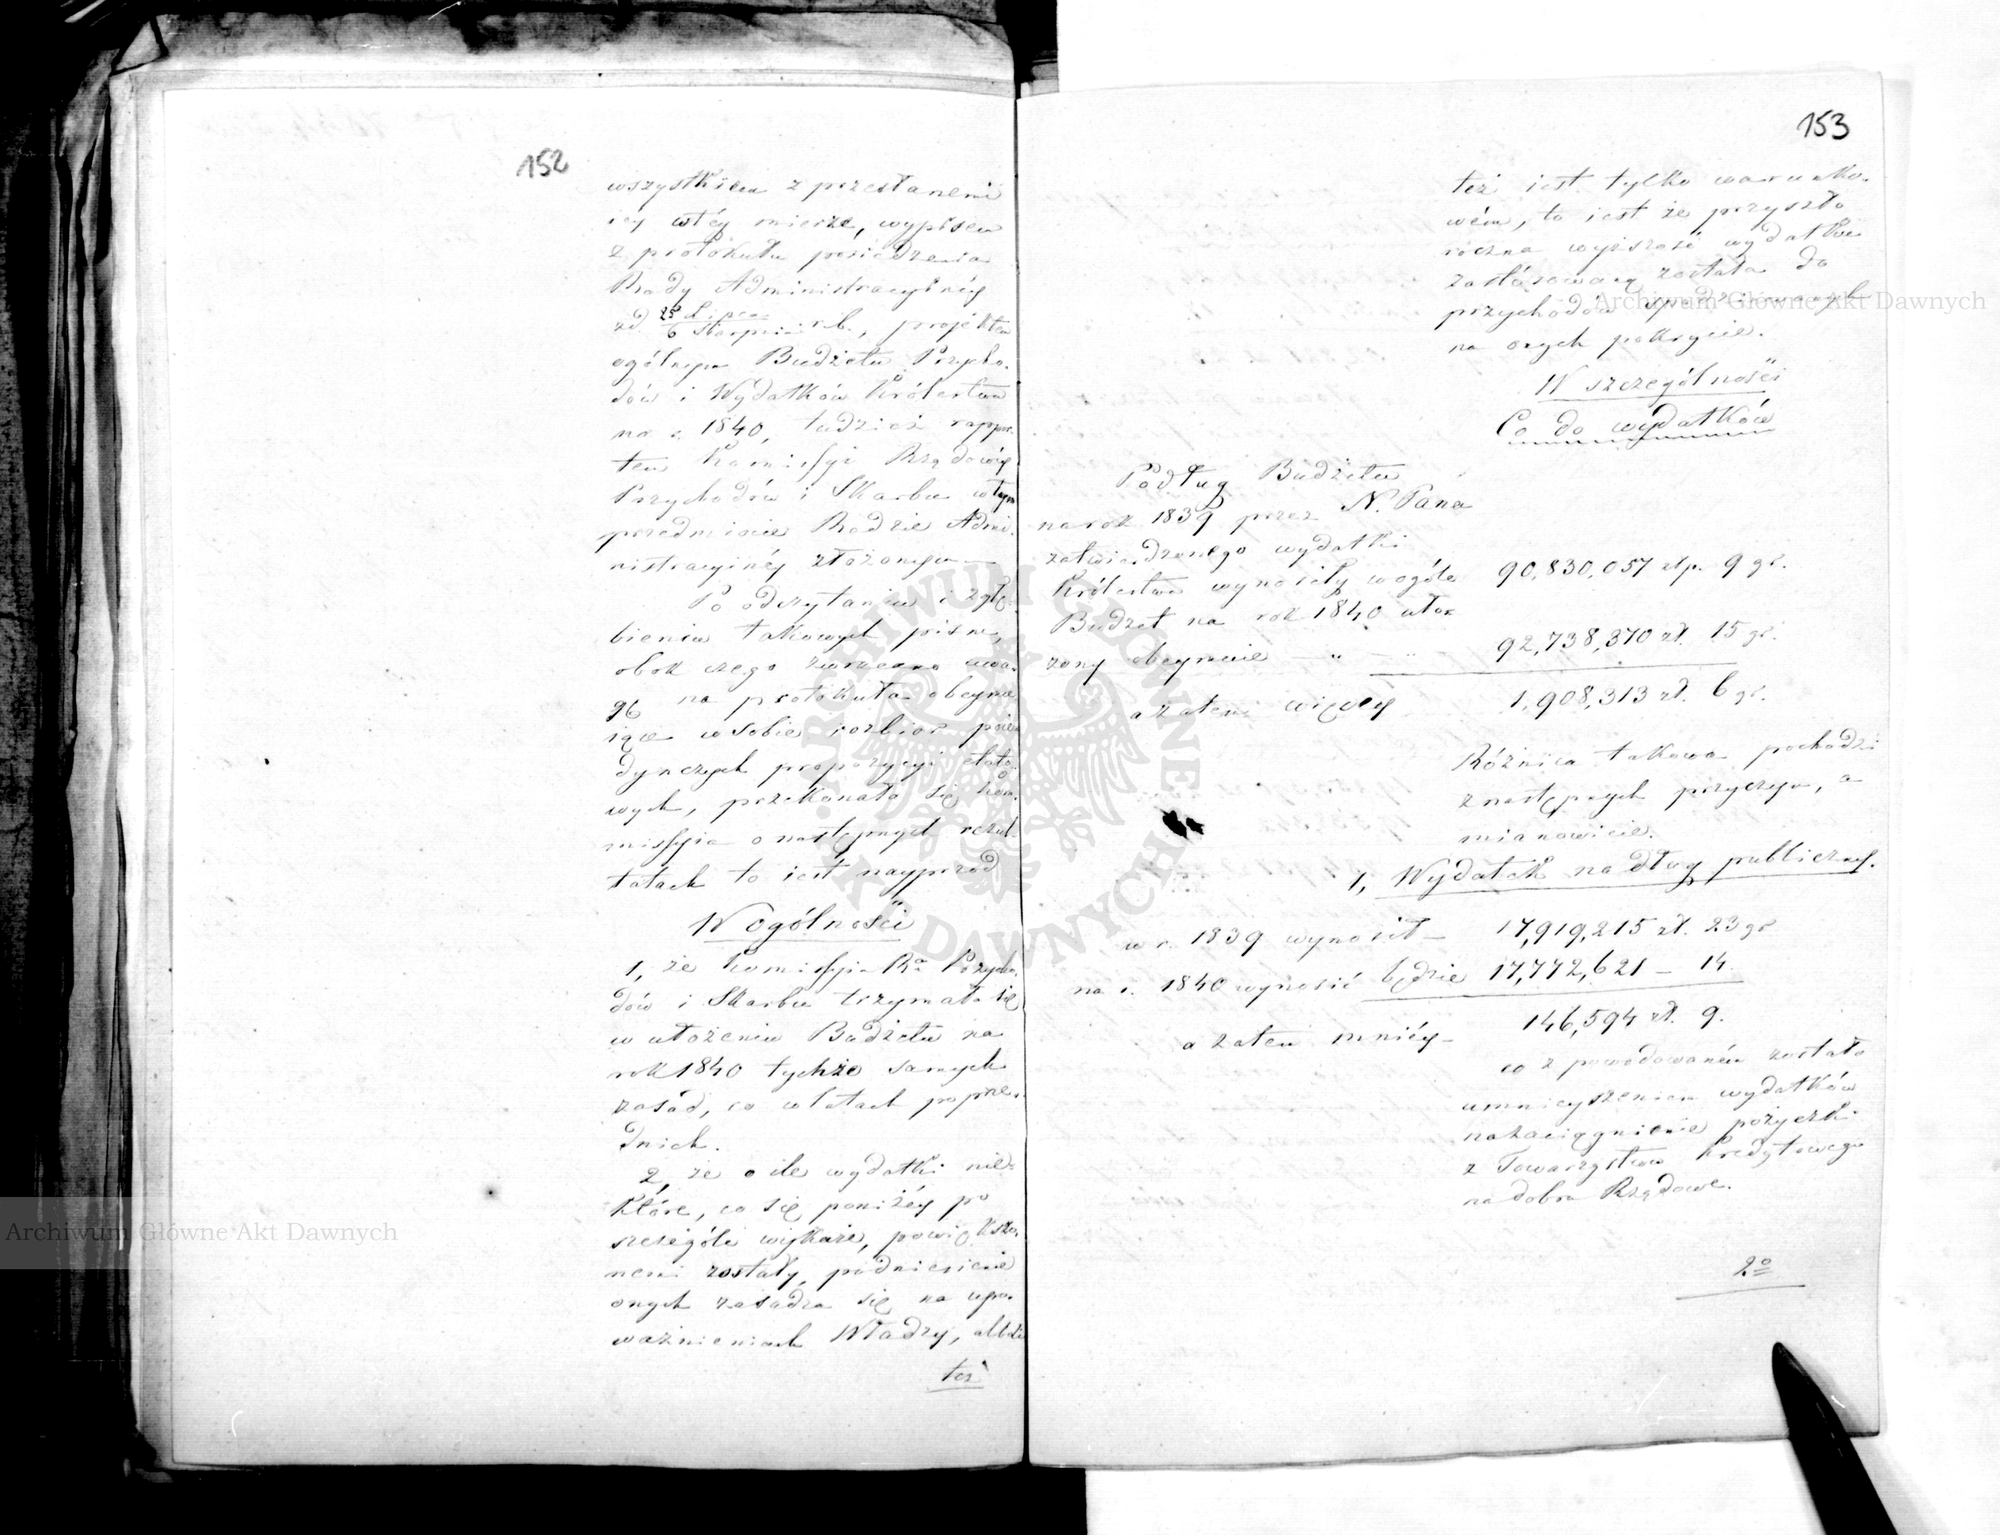 152
wszystkiem z przesłanemi
iey wtéy mierze, wypisem
z protokułu posiedzenia
Rady Administracyinéy
zd. 25 Lipca / 6 Sierpnia r.b., projektem
ogólnym Budżetu Przycho-
dów i Wydatków Królestwa
na r. 1840, tudzież rappor-
tem Kommissyi Rządowéy
Przychodów i Skarbu wtym
przedmiocie Radzie Admi-
nistracyinéy złożonym —
Po odczytaniu i zgłę-
bieniu takowych pism,
obok czego zwrócono uwa-
gę na protokuła obeymu-
iące wsobie rozbiór poie-
dynczych propozycyi etato-
wych, przekonała się Kom-
missyia o następnych rezul-
tatach to iest nayprzód
W ogólności
1, że Kommissyia Rª Przycho-
dów i Skarbu trzymała się
w ułożeniu Budżetu na
rok 1840 tychże samych
zasad, co wlatach poprze-
dnich.
2, że o ile wydatki nie-
które, co się poniżéy po
szczególe wykaże, powiększo-
nemi zostały, podniesienie
onych zasadza się na upo-
ważnieniach Władzy, albo
też
153
też iest tylko warunko-
wém, to iest że przyszło
roczna wyższość wydatków
zastósowaną została do
przychodów spodziewanych
na onych pokrycie.
W szczególności
Co do wydatków
Podług Budżetu
na rok 1839 przez N. Pana
zatwierdzonego wydatki
Królestwa wynosiły wogóle 90,830,057 złp. 9 gr.
Budżet na rok 1840 uło-
żony obeymuie — " — 92,738,370 zł. 15 gr.
a zatem więcéy 1,908,313 zł. 6 gr.
Różnica takowa pochodzi
znastępnych przyczyn, a
mianowicie.
1, Wydatek na dług publiczny.
w r. 1839 wynosił — 17,919,215 zł. 23 gr
na r. 1840 wynosić będzie 17,772,621 — 14.
a zatem mniéy — 146,594 zł. 9.
co z powodowaném zostało
umnieyszeniem wydatków
na zaciągnienie pożyczki
z Towarzystwa Kredytowego
na dobra Rządowe.
2º
Archiwum Główne Akt Dawnych
Archiwum Główne Akt Dawnych
ARCHIWUM GŁÓWNE AKT DAWNYCH